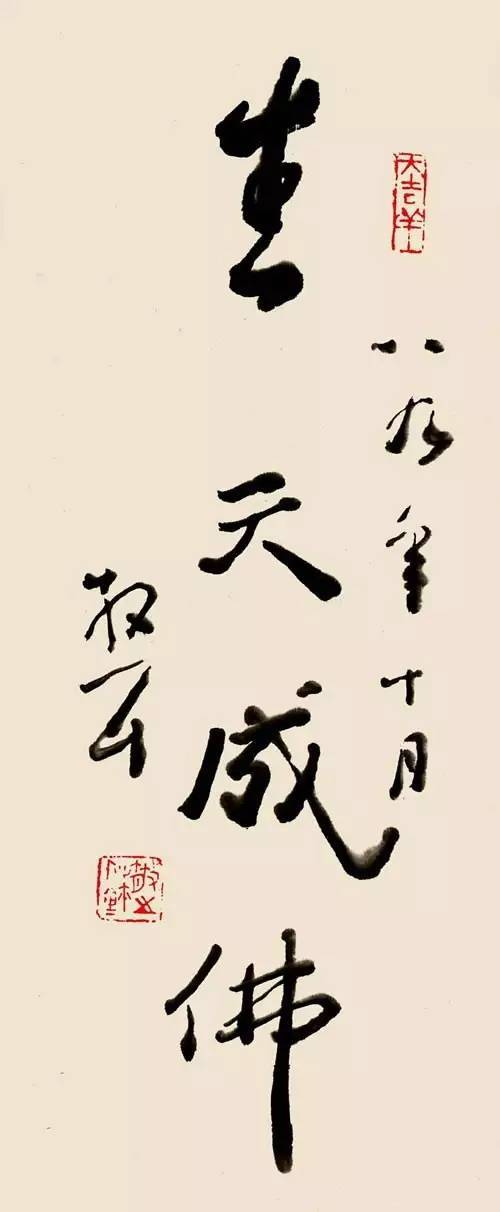 大吉羊
八九年十月
生天成佛
散